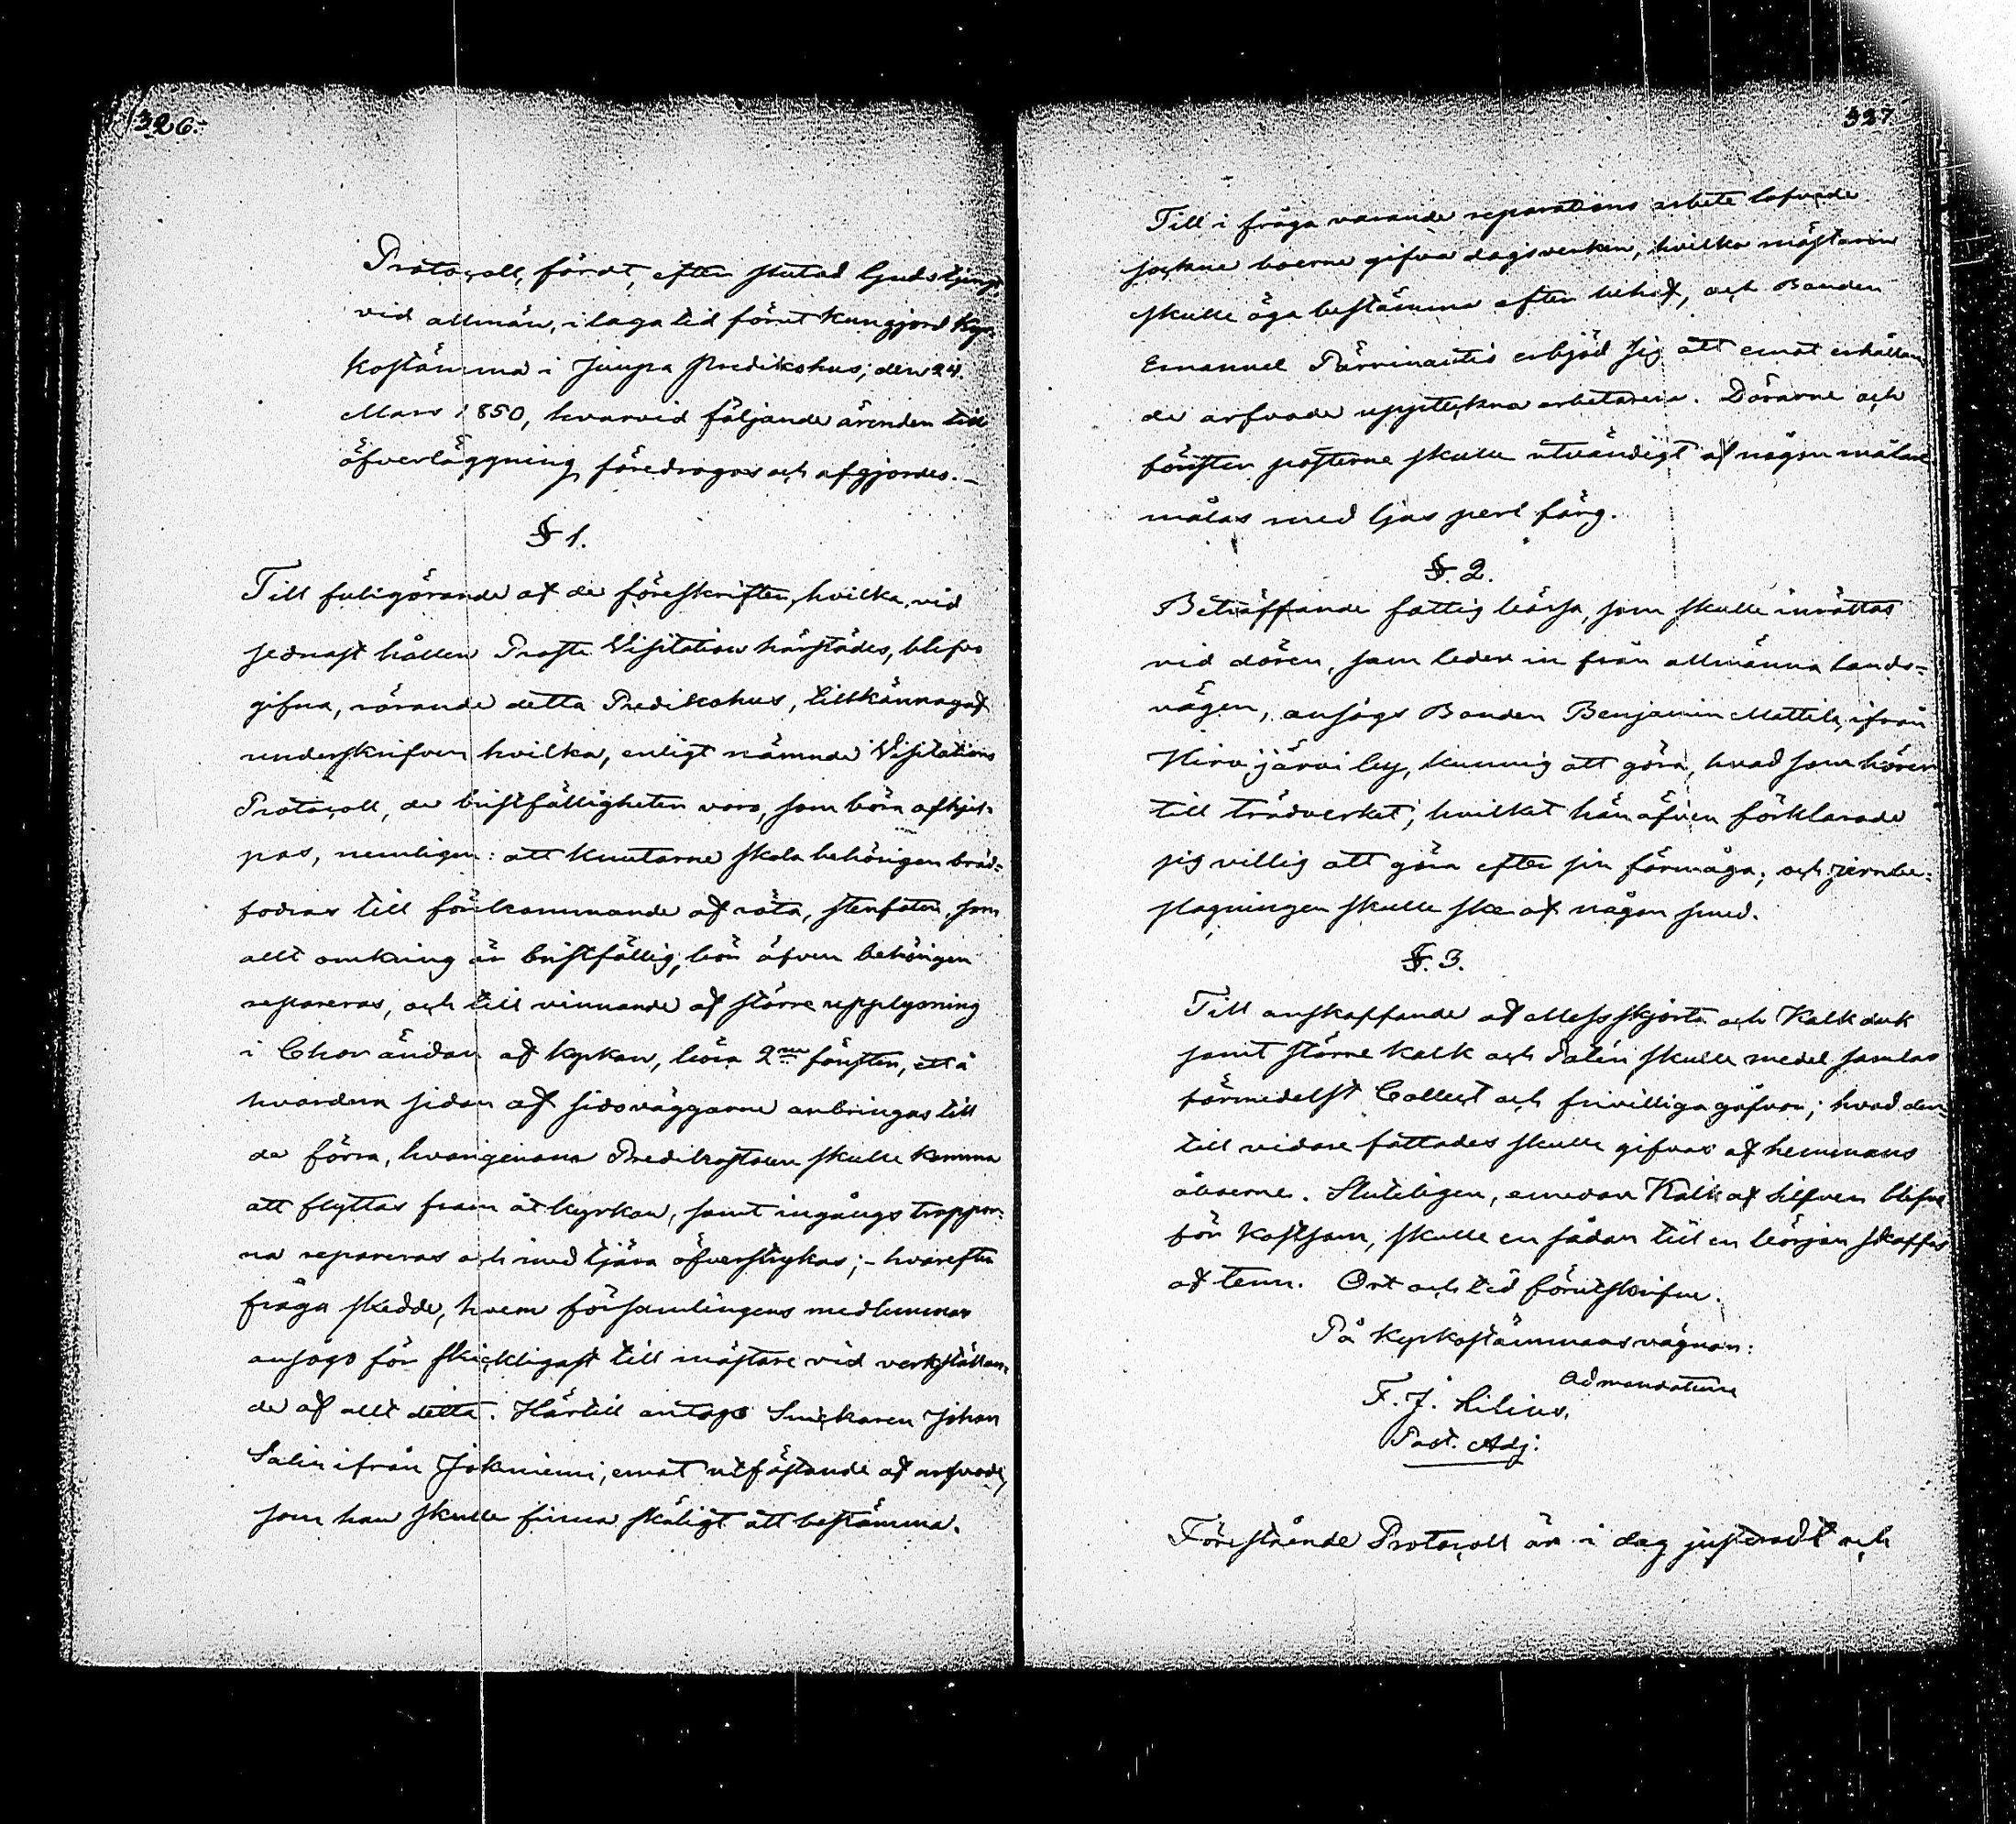 326.
Protocoll, fördt, efter slutad Gudstjenst,
vid allmän, i laga tid förut kungjord Kyr-
kostämma i Juupa Predikohus; den 24.
Mars 1850, hvarvid följande ärenden till
öfverläggning föredrogos och afgjordes.-
§ 1.
Till fullgörande af de föreskrifter, hvilka, vid
sednast hållen Prosts Visitation härstädes, blefvo
gifna, rörande detta Predikohus, tillkännagaf
underskrifven hvilka, enligt nämnde Visitations
Protocoll, de bristfälligheter voro, som böra afhjel-
pas, nemligen: att knutarne skola behörigen bräd-
fodras till förekommande af röta, stenfoten, som
allt omkring är bristfällig, bör äfven behörigen
repareras, och till vinnande af större upplysning
i Chor ändan af kyrkan, böra 2ne fönster, ett å
hvardera sidan af sidoväggarne anbringas till
de förra, hvarigenom Predikostolen skulle komma
att flyttas fram åt kyrkan, samt ingångs trappor-
na repareras och med tjära öfverstrykas;- hvarefter
fråga skedde, hvem församlingens medlemmar
ansågo för skickligast till mästare vid verkställan-
de af allt detta. Härtill antogs Snickaren Johan
Salin ifrån Jokiniemi, emot utfästande af arfvode,
som han skulle finna skäligt att bestämma.
327
Till i fråga varande reparations arbete lofvade
sockne boerne gifva dagsverken, hvilka mästaren
skulle äga bestämma efter behof, och Bonden
Emanuel erbjöd sig att emot erhållan-
de arfvode uppteckna arbetarena. Dörarne och
fönster posterne skulle utvändigt af någon målare
målas med ljus perl färg.
§. 2.
Beträffande fattig bössa, som skulle inrättas
vid dören, som leder in från allmänna lands-
vägen, ansågs Bonden Benjamin Mattila, ifrån
Hirvijärvi by, kunnig att göra, hvad som hörer
till trädverket; hvilket han äfven förklarade
sig villig att göra efter sin förmåga; och jernbe-
slagningen skulle ske af någon smed.
§. 3.
Till anskaffande af Messskjorta och Kalkduk
samt större Kalk och Patén skulle medel samlas
förmedelst Collect och frivilliga gåfvor; hvad der-
till vidare fattades skulle gifvas af hemmans
åboerne. Sluteligen, emedan Kalk af silfver blefve
för kostsam, skulle en sådan till en början skaffas
af tenn. Ort och tid förutskrifne.
På Kyrkostämmans vägnar:
ad mandatum
F. J. Lilius,
Past. Adj.
Förestående Protocoll är i dag justeradt och